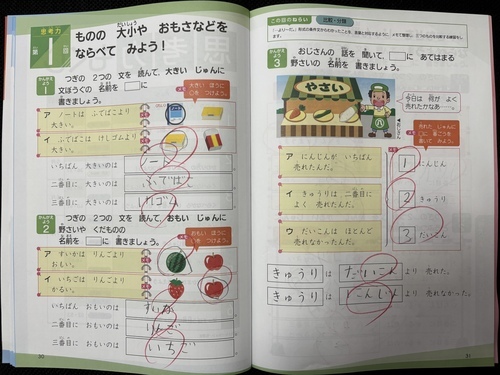 思考力
第1回
ものの 大小や おもさなどを
ならべて みよう！
かんがえよう
1
つぎの 2つの 文を 読んで、大きい じゅんに
文ぼうぐの 名前を □に
書きましょう。
大きい ほうに
○を つけよう。
ア ノートは ふでばこより
大きい。
イ ふでばこは けしゴムより
大きい。
いちばん 大きいのは
ノート
二番目に 大きいのは
ふでばこ
三番目に 大きいのは
けしゴム
かんがえよう
2
つぎの 2つの 文を 読んで、おもい じゅんに
野さいや くだものの
名前を □に 書きましょう。
おもい ほうに
○を つけよう。
ア すいかは りんごより
おもい。
イ いちごは りんごより
かるい。
いちばん おもいのは
すいか
二番目に おもいのは
りんご
三番目に おもいのは
いちご
30
この回のねらい
比較・分類
かんがえよう
3
おじさんの 話を 聞いて、□に あてはまる
野さいの 名前を 書きましょう。
やさい
今日は 何が よく
売れたかなあ…。
売れた じゅんに
□に 番ごうを
書いて みよう。
ア にんじんが いちばん
売れたんだ。
イ きゅうりは 二番目に
よく 売れたんだ。
ウ だいこんは ほとんど
売れなかったんだ。
1 にんじん
2 きゅうり
3 だいこん
きゅうり は だいこん より 売れた。
きゅうり は にんじん より 売れなかった。
31